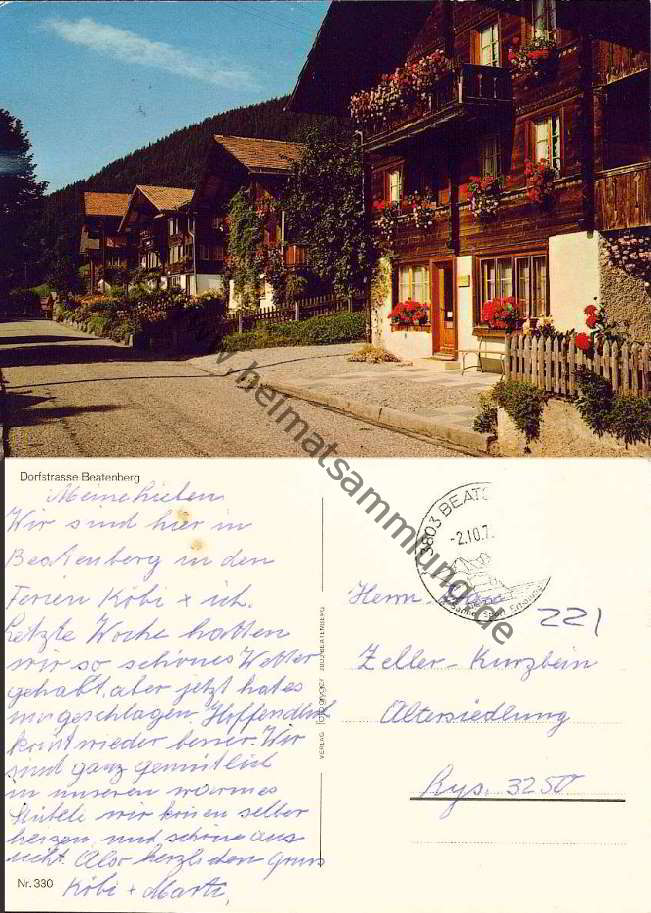 Dorfstrasse Beatenberg
Meine Lieben
Wir sind hier in
Beatenberg in den
Ferien Köbi + ich.
Letzte Woche hatten
wir so schönes Wetter
gehabt, aber jetzt hat es
umgeschlagen. Hoffendlich
kommt wieder besser. Wir
sind ganz gemütlich
in unseren warmes
Stübeli wir können selber
heizen und schöne aus
sicht. Also herzl den Gruss
Köbi + Marti,
Nr. 330
3803 BEATE
-2.10.7
Herrn
221
Zeller-Kurzbein
Altersiedlung
Rys. 3250
www.heimatsammlung.de